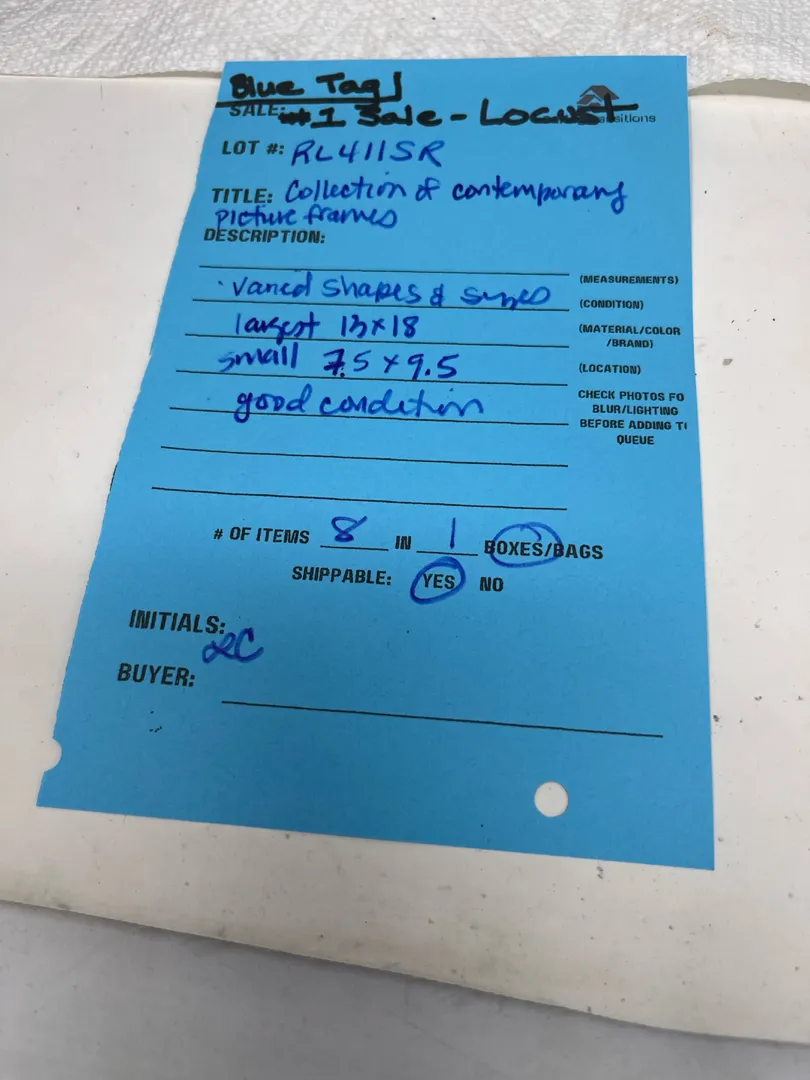 Blue Tag!
SALE: #1 Sale - Locust
LOT #: RL411SR
TITLE: Collection of contemporary
picture frames
DESCRIPTION:
(MEASUREMENTS)
· varied shapes & sizes (CONDITION)
largest 13x18 (MATERIAL/COLOR
/BRAND)
small 7.5 x 9.5 (LOCATION)
good condition CHECK PHOTOS FO
BLUR/LIGHTING
BEFORE ADDING T
QUEUE
# OF ITEMS 8 IN 1 BOXES/BAGS
SHIPPABLE: YES NO
INITIALS:
BUYER: